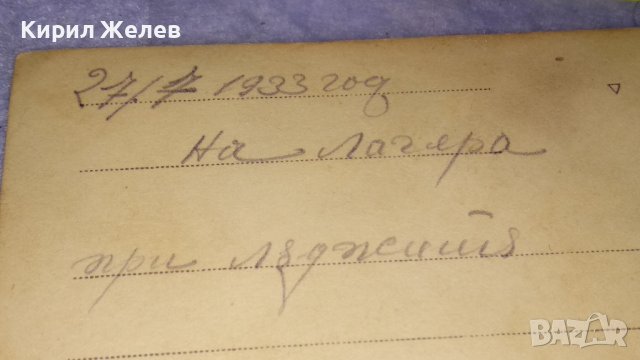 Кирил Желев
27/7 1933 год
На лагера
при лъджитѣ
BAZAR